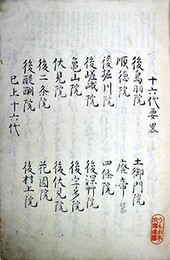 十六代要畧
後鳥羽院 土御門院
順徳院 廃帝
後堀川院 四條院
後嵯峨院 後深草院
亀山院 後宇多院
伏見院 後伏見院
後二条院 花園院
後醍醐院 後村上院
已上十六代